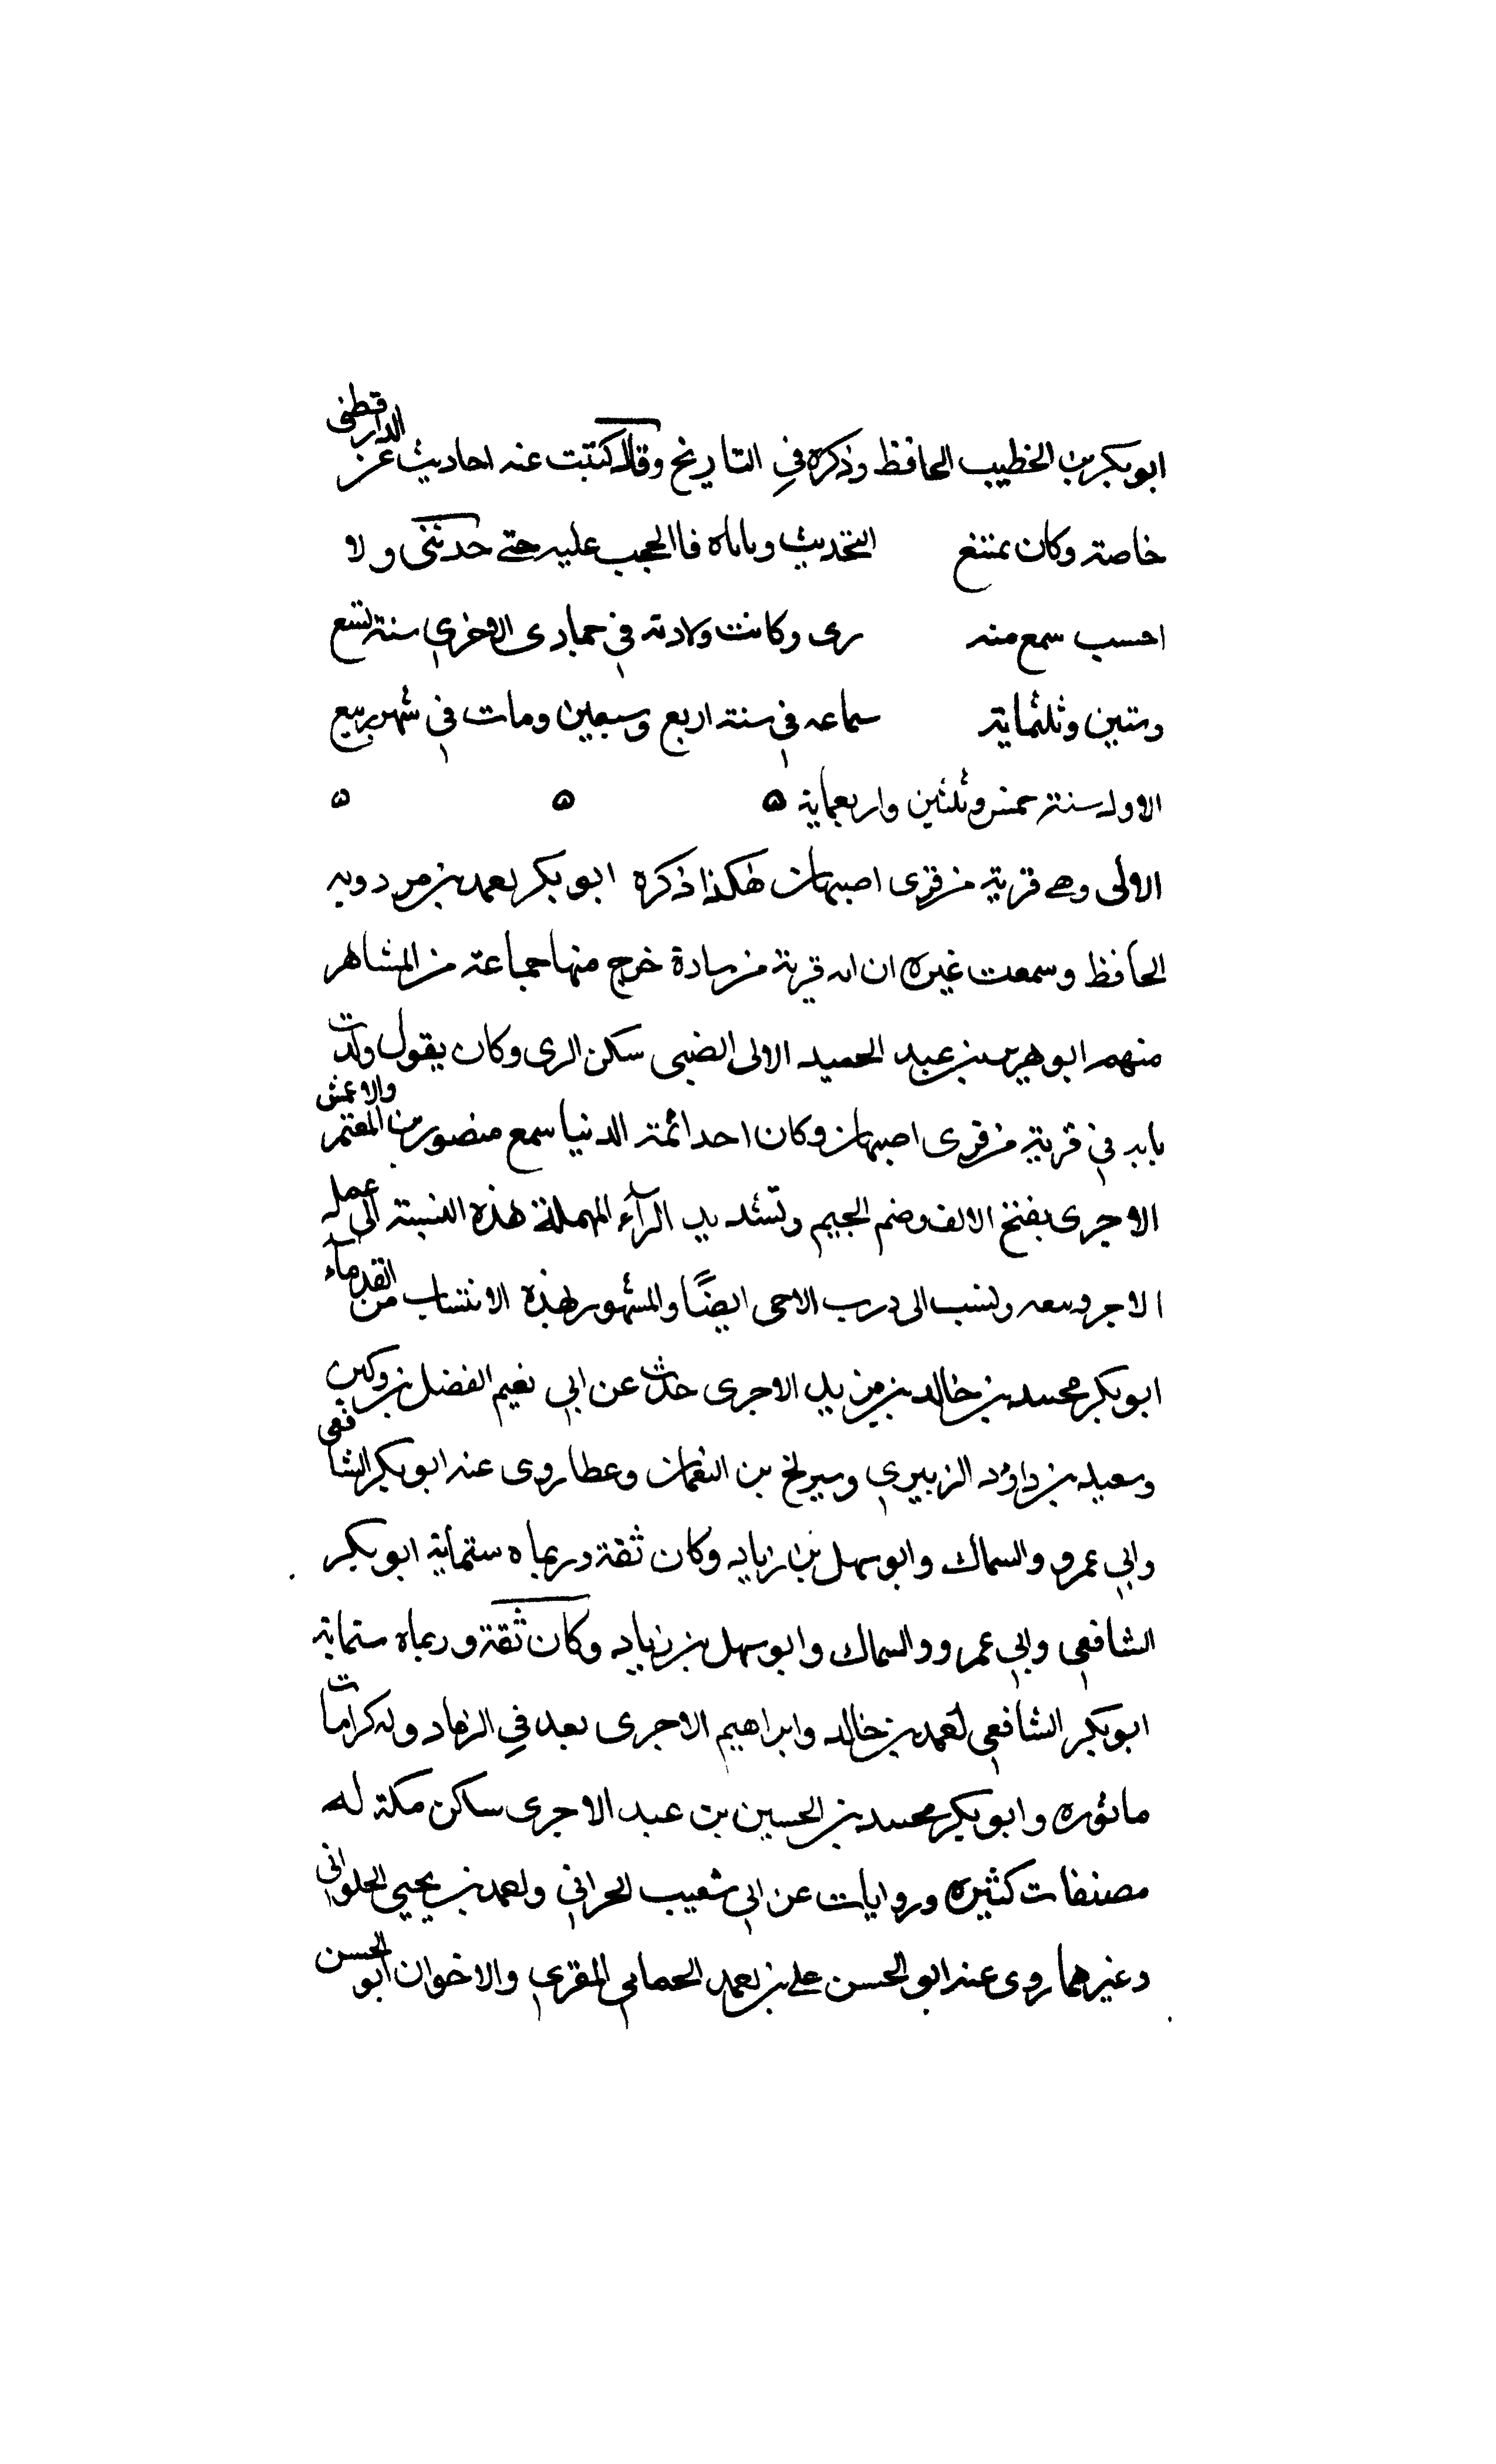 ابوبكر بن الخطيب الحافظ وذكره في التاريخ وقال كتبت عنه احاديث عن الدارقطنى
خاصة وكان يمتنع التحديث وياباه فاالحجب عليه حتى حدثنى ولا
احسب سمع منه رى وكانت ولادته في جمادى الاخرى سنة تسع
وستين وثلثماية سماعه في سنة اربع وسبعين ومات في شهر ربيع
الاول سنة خمس وثلثين واربعماية ۵ ۵ ۵
الالى وهى قرية من قرى اصبهان هكذا ذكره ابو بكر احمد بن مردويه
الحافظ وسمعت غيره ان ابه قرية من سادة خرج منها جماعة من المشاهر
منهم ابو بن عبد الحميد الالى الضبى سكن الرى وكان يقول ولدت
بابه في قرية من قرى اصبهان وكان احد ائمة الدنيا سمع منصور بن المعتمر والاعمش
الاجرى بفتح الالف وضم الجيم وتشديد الرآء المهملة هذه النسبة الى عمل
الاجر وبيعه ونسب الى درب الاجى ايضًا والمشهور بهذه الانتساب من القدمآء
ابوبكر محمد بن خالد بن يزيد الاجرى حدث عن ابي نعيم الفضل بن وكين
وسعيد بن داؤد الزبيري وسريح بن النعمان وعطا روى عنه ابو بكر الشافعى
وابي عمرو والسماك وابو سهل بن زياد وكان ثقة وربماه ستماية ابو بكر
الشافعي وابي عمرو والسماك وابو سهل بن زياد وكان ثقة وربماه ستماية
ابوبكر الشافعي احمد بن خالد وابراهيم الاجرى بعد في الزهاد وله كرامات
ماثوره وابو بكر محمد بن الحسين بن عبد الاجرى ساكن مكة له
مصنفات كثيره وروايات عن ابي شعيب الحراني واحمد بن يحيى الحلواني
وغيرهما روى عنه ابو الحسن على بن احمد الحمامي المقري والاخوان ابو الحسن